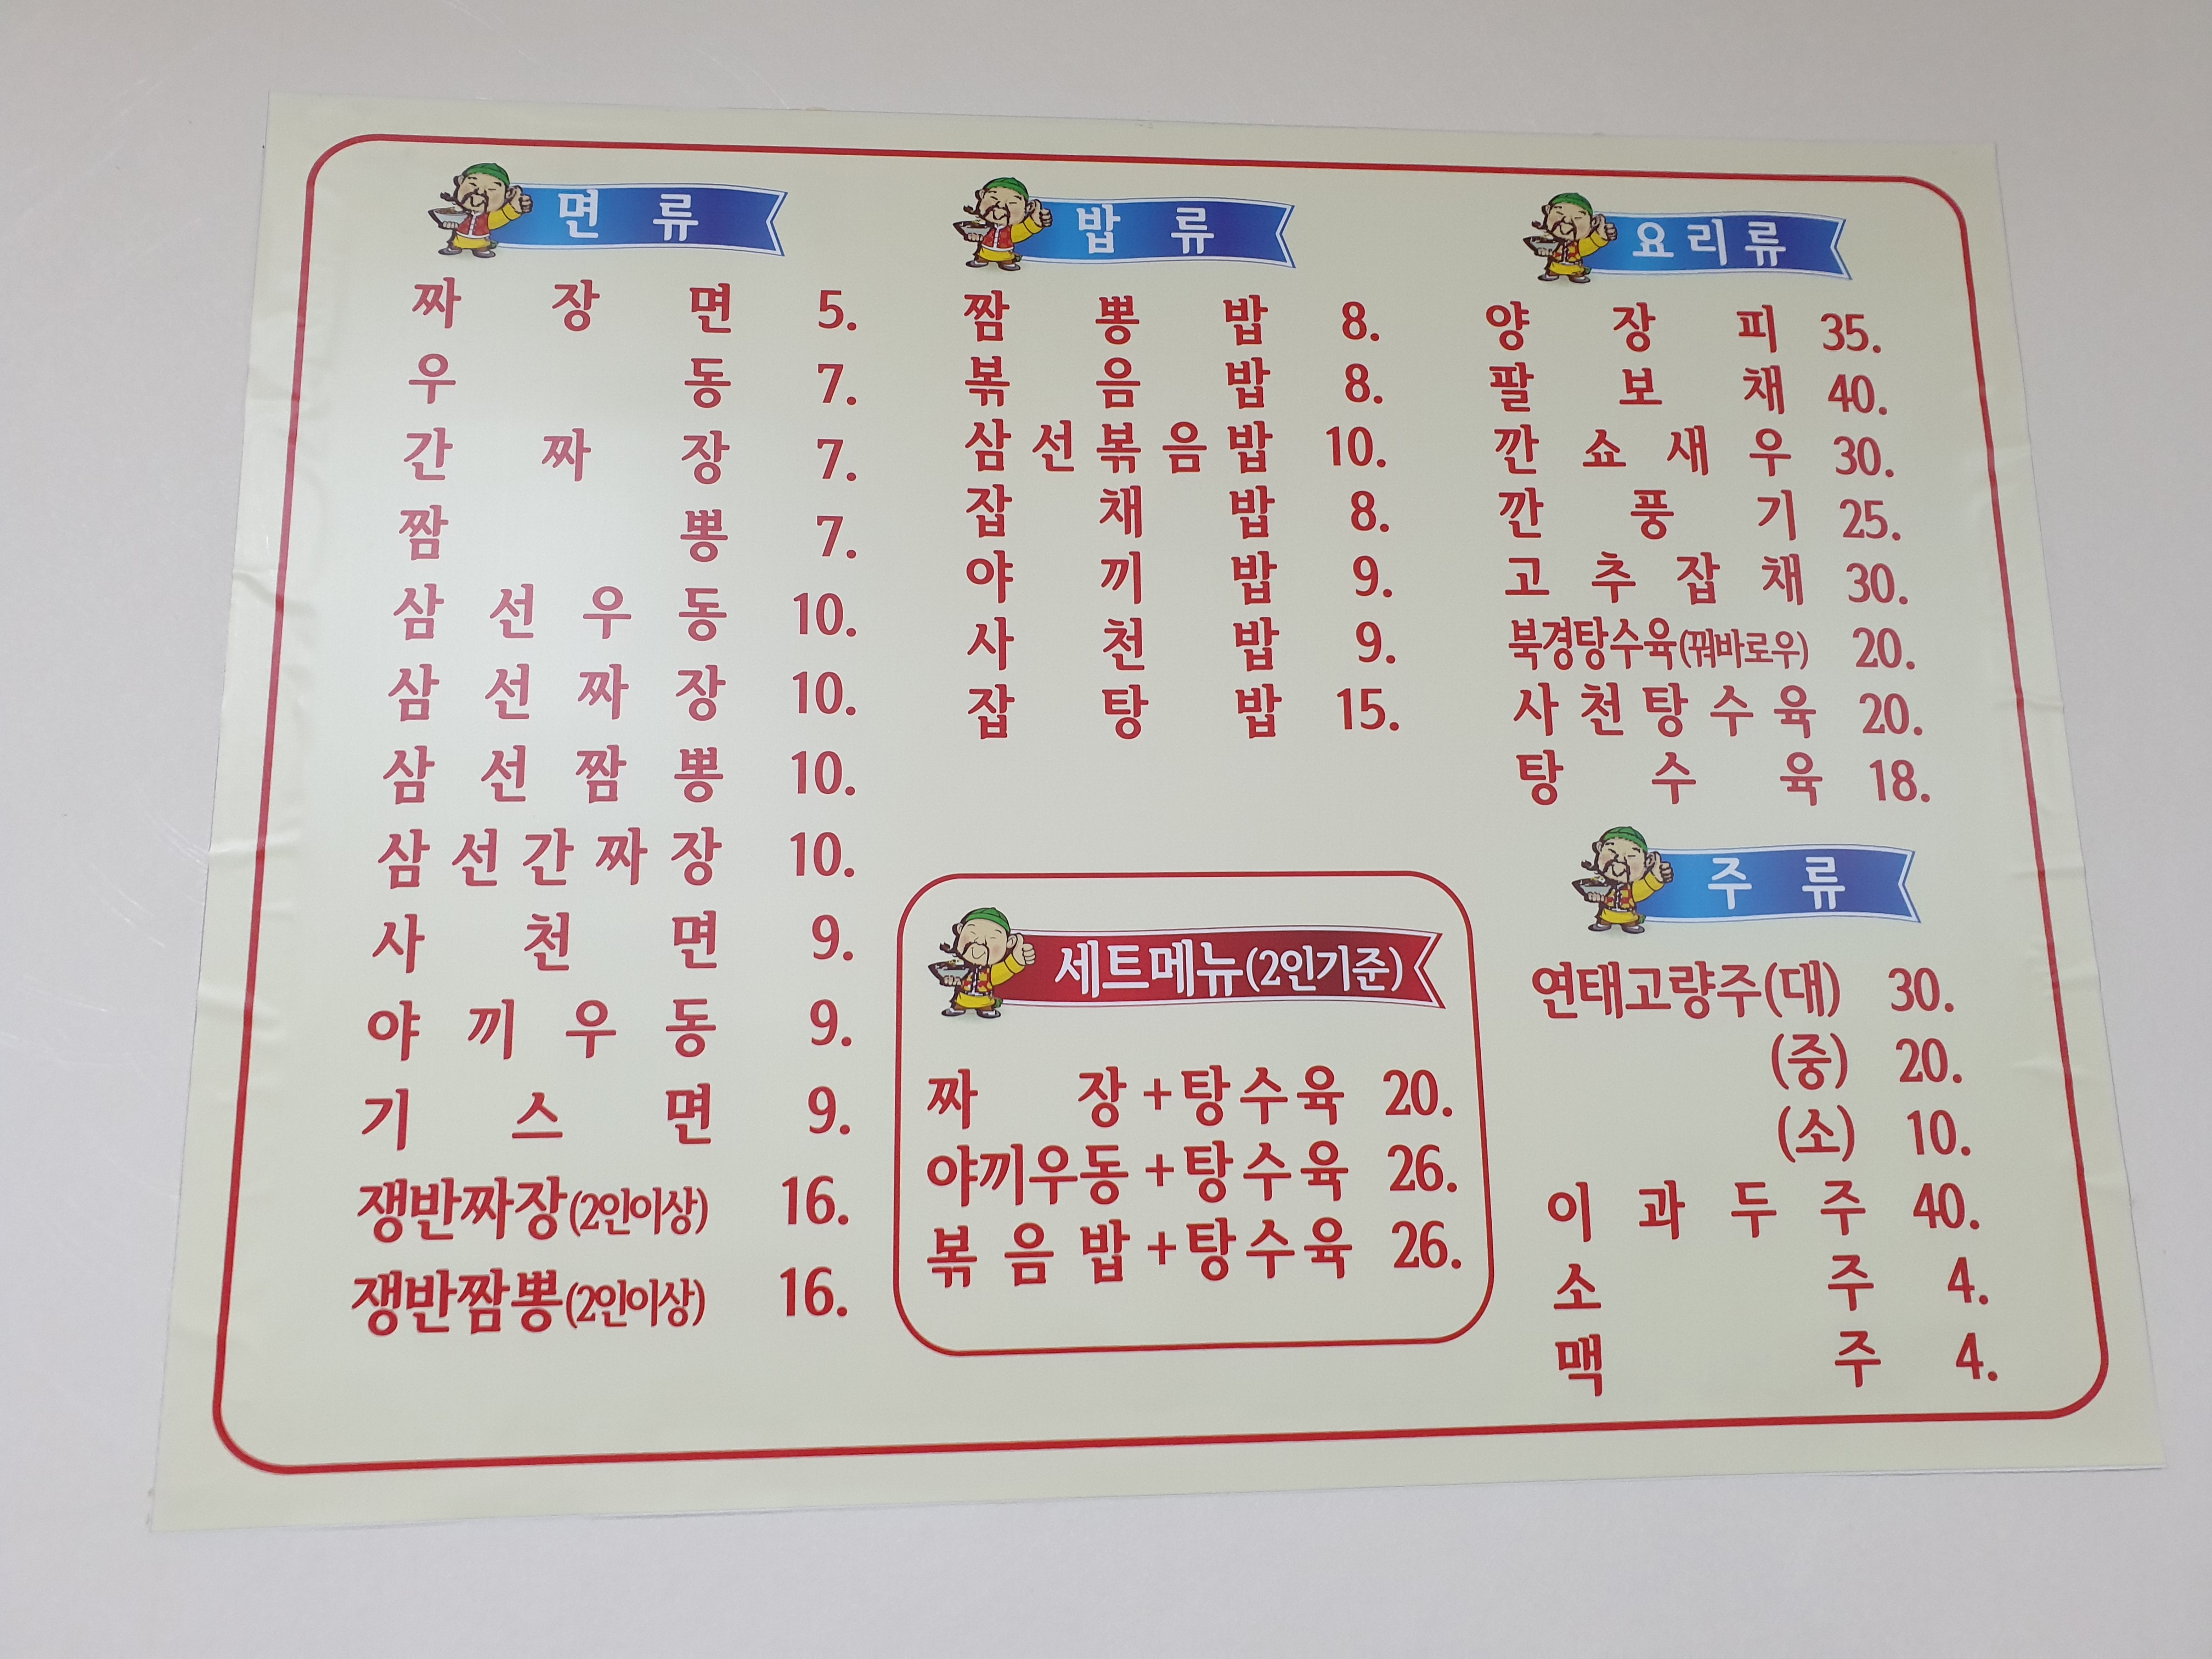 면 류
짜 장 면 5.
우 동 7.
간 짜 장 7.
짬 뽕 7.
삼 선 우 동 10.
삼 선 짜 장 10.
삼 선 짬 뽕 10.
삼 선 간 짜 장 10.
사 천 면 9.
야 끼 우 동 9.
기 스 면 9.
쟁반짜장(2인이상) 16.
쟁반짬뽕(2인이상) 16.
밥 류
짬 뽕 밥 8.
볶 음 밥 8.
삼 선 볶 음 밥 10.
잡 채 밥 8.
야 끼 밥 9.
사 천 밥 9.
잡 탕 밥 15.
세트메뉴(2인기준)
짜 장+탕수육 20.
야끼우동+탕수육 26.
볶 음 밥+탕수육 26.
요리류
양 장 피 35.
팔 보 채 40.
깐 쇼 새 우 30.
깐 풍 기 25.
고 추 잡 채 30.
북경탕수육(꿔바로우) 20.
사 천 탕 수 육 20.
탕 수 육 18.
주 류
연태고량주(대) 30.
(중) 20.
(소) 10.
이 과 두 주 40.
소 주 4.
맥 주 4.